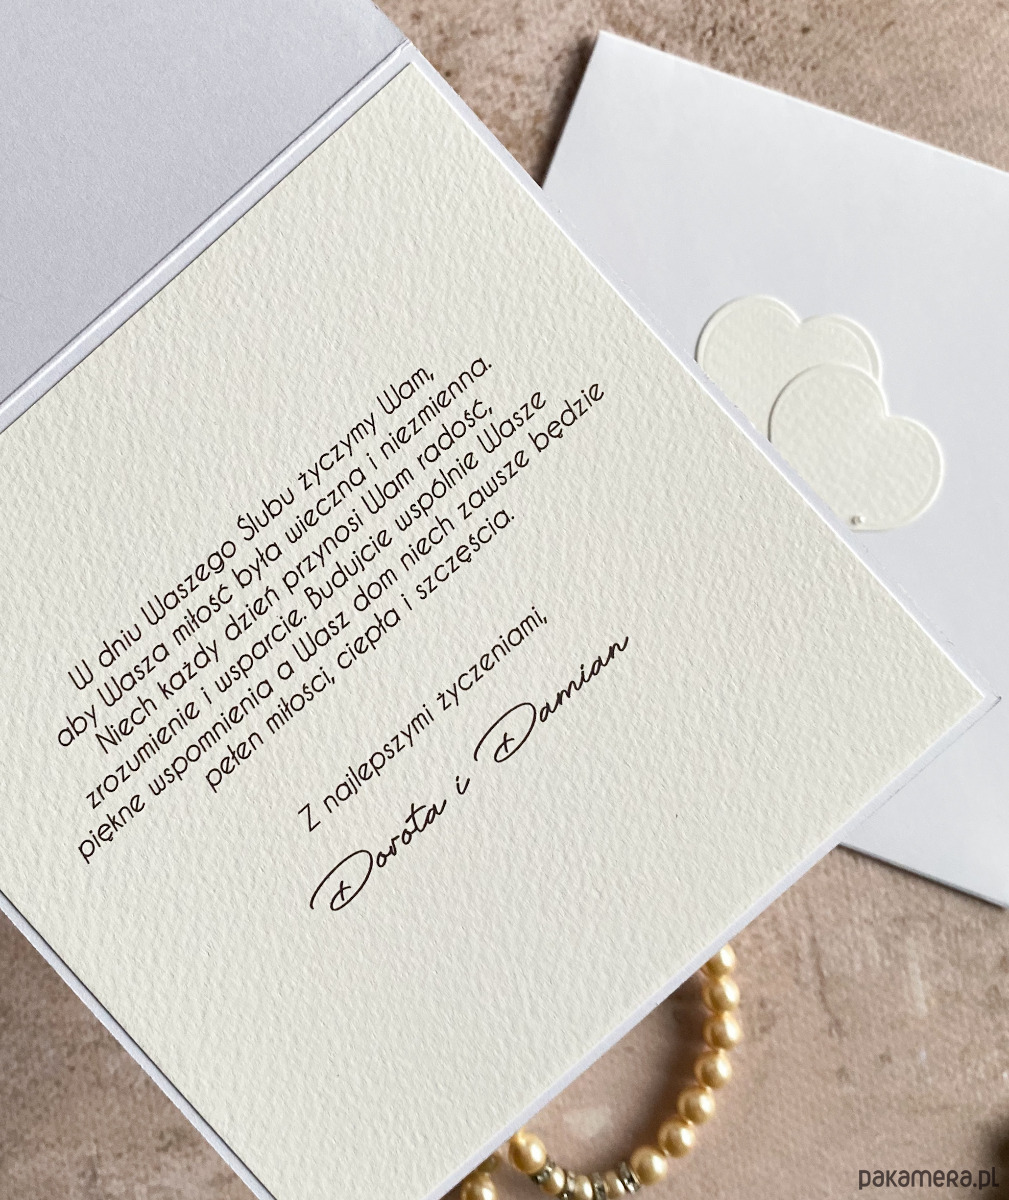 W dniu Waszego Ślubu życzymy Wam,
aby Wasza miłość była wieczna i niezmienna.
Niech każdy dzień przynosi Wam radość,
zrozumienie i wsparcie. Budujcie wspólnie Wasze
piękne wspomnienia a Wasz dom niech zawsze będzie
pełen miłości, ciepła i szczęścia.
Z najlepszymi życzeniami,
Dorota i Damian
pakamera.pl